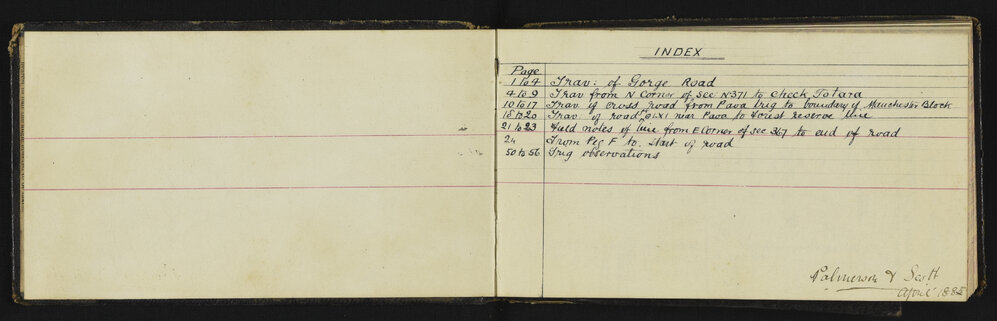 INDEX
Page
1 to 4 Trav: of Gorge Road
4 to 9 Trav from N Corner of sec N371 to check Totara
10 to 17 Trav of cross road from Pava trig to boundary of Manchester Block
18 to 20 Trav of road near Pava to Forest reserve line
21 to 23 Field notes of line from E Corner of sec 367 to end of road
24 From Peg F to start of road
50 to 56 Trig observations
Palmerson & Scott
April 1885